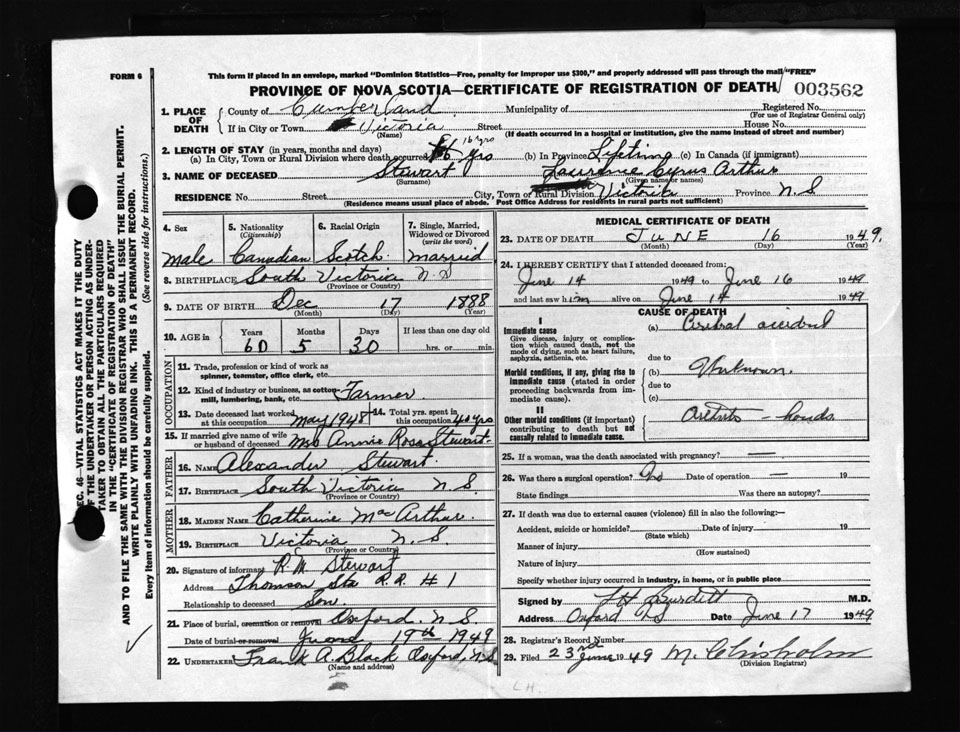 FORM 6
This form if placed in an envelope, marked "Dominion Statistics—Free, penalty for improper use $300," and properly addressed will pass through the mail "FREE"
PROVINCE OF NOVA SCOTIA—CERTIFICATE OF REGISTRATION OF DEATH 003562
1. PLACE OF DEATH
County of Cumberland Municipality of Registered No.
(For use of Registrar General only)
If in City or Town Victoria Street House No.
(Name) (If death occurred in a hospital or institution, give the name instead of street and number)
2. LENGTH OF STAY (in years, months and days) 16 yrs
(a) In City, Town or Rural Division where death occurred yrs (b) In Province Lifetime (c) In Canada (if immigrant)
3. NAME OF DECEASED Stewart Cyrus Arthur
(Surname) (Given name or names)
RESIDENCE No. Street City, Town or Rural Division Victoria Province N.S
(Residence means usual place of abode. Post Office Address for residents in rural parts not sufficient)
4. Sex 5. Nationality (Citizenship) 6. Racial Origin 7. Single, Married, Widowed or Divorced (write the word)
Male Canadian Scotch married
8. BIRTHPLACE South Victoria N.S
(Province or Country)
9. DATE OF BIRTH Dec 17 1888
(Month) (Day) (Year)
10. AGE in Years Months Days If less than one day old
60 5 30 hrs. or min.
OCCUPATION
11. Trade, profession or kind of work as spinner, teamster, office clerk, etc.
12. Kind of industry or business, as cotton-mill, lumbering, bank, etc. Farmer
13. Date deceased last worked at this occupation May 1948 14. Total yrs. spent in this occupation 40 yrs
15. If married give name of wife or husband of deceased Mrs Annie Rose Stewart
FATHER
16. NAME Alexander Stewart
17. BIRTHPLACE South Victoria N.S.
(Province or Country)
MOTHER
18. MAIDEN NAME Catherine MacArthur
19. BIRTHPLACE Victoria N.S.
(Province or Country)
20. Signature of informant R.M. Stewart
Address Thomson Sta R.R. #1
Relationship to deceased Son
21. Place of burial, cremation or removal Oxford, N.S.
Date of burial or removal 19th 1949
22. UNDERTAKER Frank A. Black Oxford, N.S.
(Name and address)
MEDICAL CERTIFICATE OF DEATH
23. DATE OF DEATH JUNE 16 1949.
(Month) (Day) (Year)
24. I HEREBY CERTIFY that I attended deceased from:
June 14 1949 to June 16 1949
and last saw him alive on June 14 1949
CAUSE OF DEATH
I
Immediate cause (a) Cerebral accident
Give disease, injury or complication which caused death, not the mode of dying, such as heart failure, asphyxia, asthenia, etc.
due to
Morbid conditions, if any, giving rise to immediate cause (stated in order proceeding backwards from immediate cause).
(b) Unknown.
due to
(c)
II
Other morbid conditions (if important) contributing to death but not causally related to immediate cause.
Arthritis — hands
25. If a woman, was the death associated with pregnancy? —
26. Was there a surgical operation? No Date of operation — 19
State findings Was there an autopsy?
27. If death was due to external causes (violence) fill in also the following:—
Accident, suicide or homicide? Date of injury 19
(State which)
Manner of injury
(How sustained)
Nature of injury
Specify whether injury occurred in industry, in home, or in public place
Signed by Burdett M.D.
Address Oxford NS Date June 17 1949
28. Registrar's Record Number
29. Filed 23rd June 1949 M. Chisholm
(Division Registrar)
LH
SEC. 46—VITAL STATISTICS ACT MAKES IT THE DUTY
OF THE UNDERTAKER OR PERSON ACTING AS UNDERTAKER TO OBTAIN ALL THE PARTICULARS REQUIRED
IN THE "CERTIFICATE OF REGISTRATION OF DEATH"
AND TO FILE THE SAME WITH THE DIVISION REGISTRAR WHO SHALL ISSUE THE BURIAL PERMIT.
WRITE PLAINLY WITH UNFADING INK. THIS IS A PERMANENT RECORD.
Every item of information should be carefully supplied. (See reverse side for instructions.)